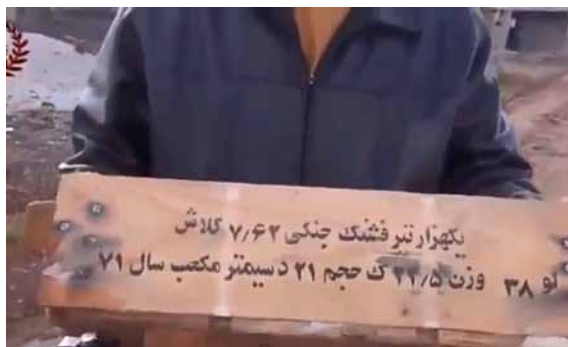 یکهزار تیر فشنگ جنگی ۷٫۶۲ کلاش
لو ۳۸ وزن ۲۲٫۵ ک حجم ۲۱ دسیمتر مکعب سال ۷۱